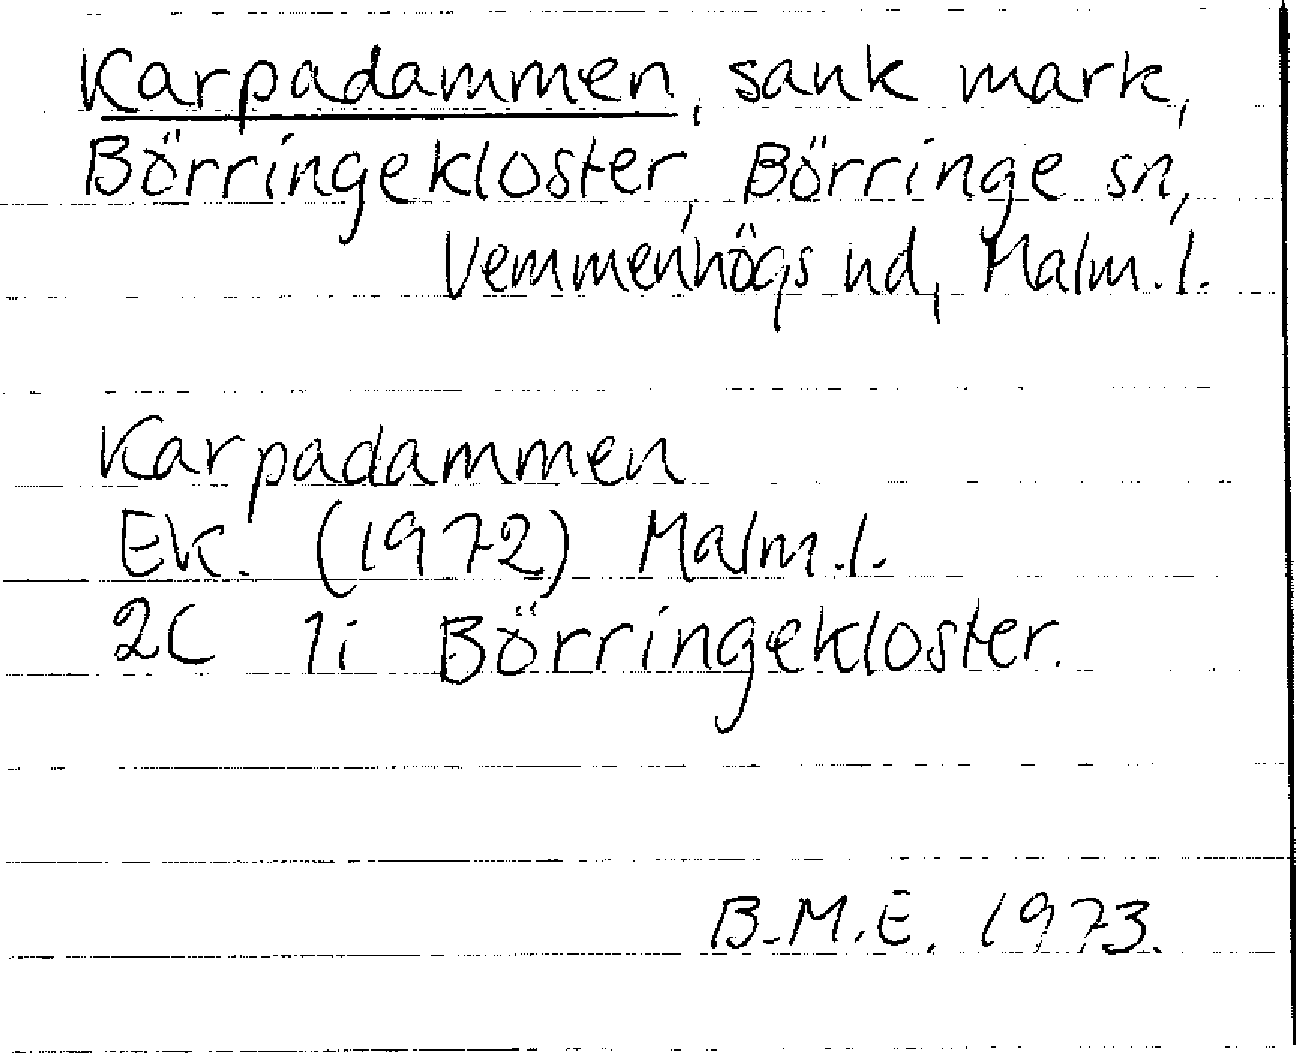 Karpadammen, sank mark,
Börringekloster, Börringe sn,
Vemmenhögs hd, Malm.l.
Karpadammen
Ek. (1972) Malm.l.
2C 1i Börringekloster.
B.M.E. 1973.